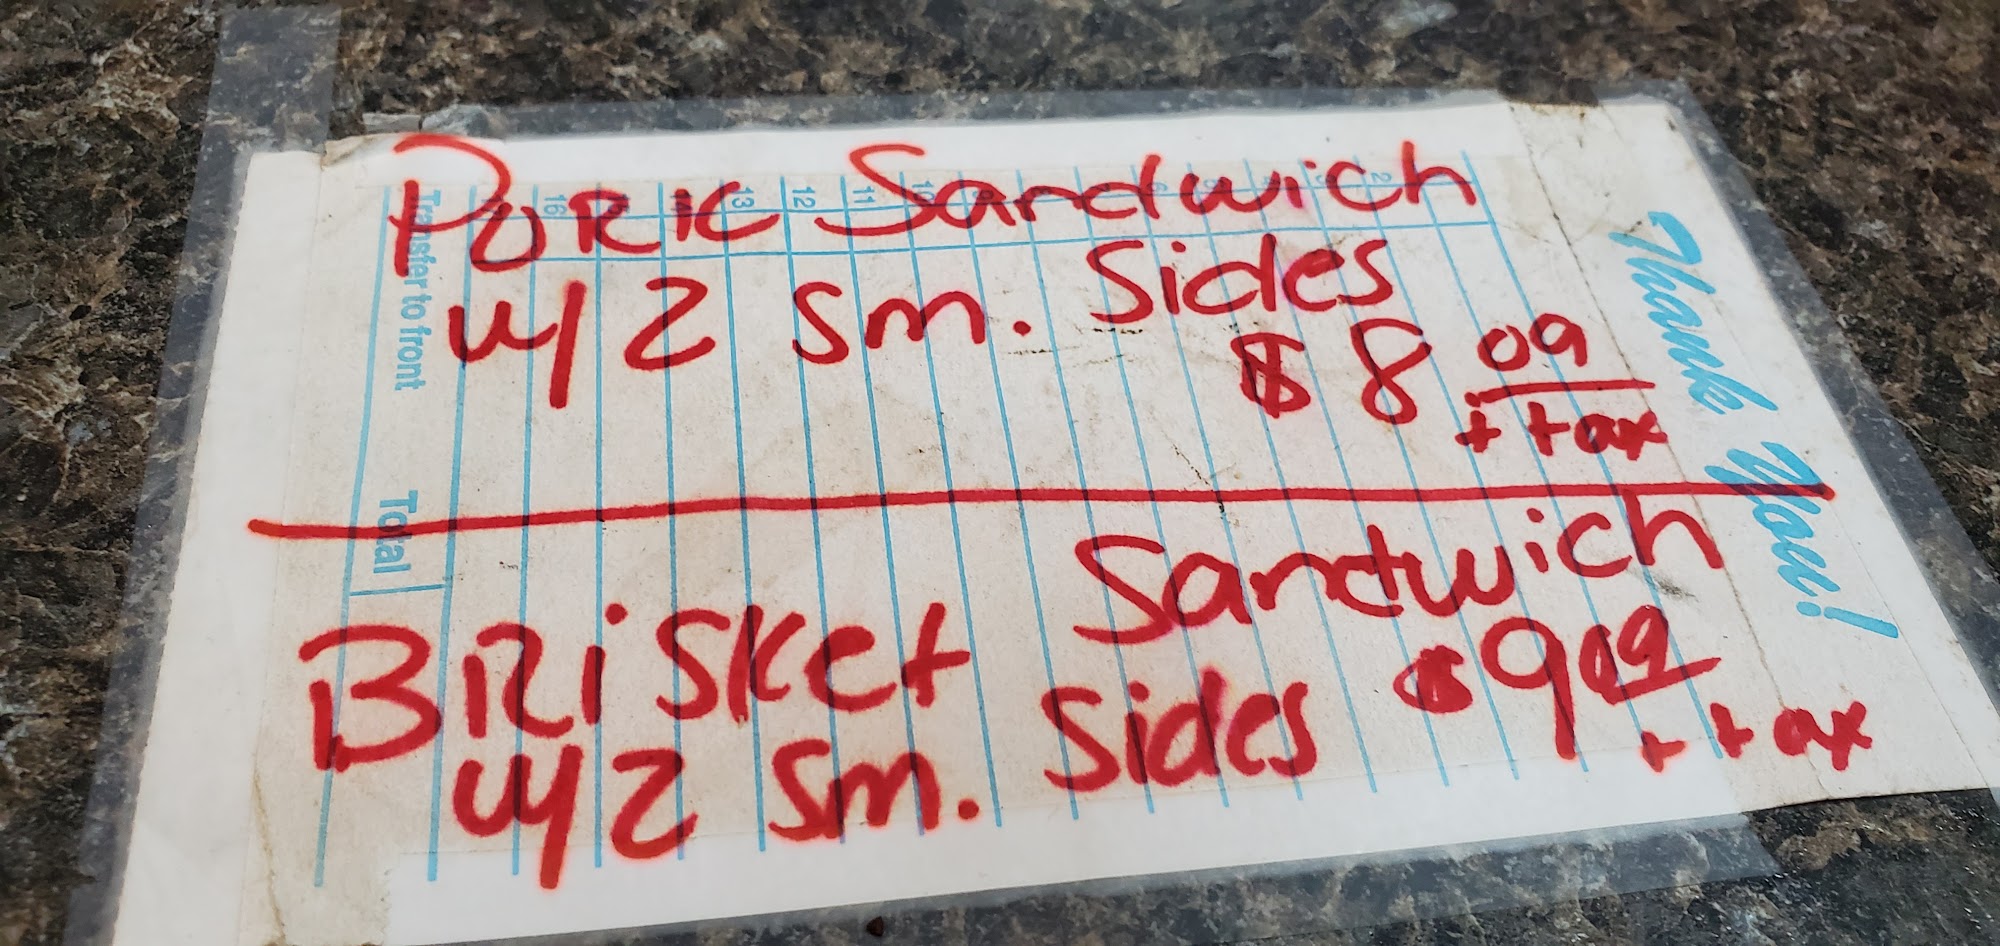 Pork Sandwich
w/ 2 sm. Sides
$8 09
+ tax
Sandwich
Brisket
w/ 2 sm. Sides $9 09
+ tax
Thank You!
Transfer to front
Total
16
14
13
12
11
10